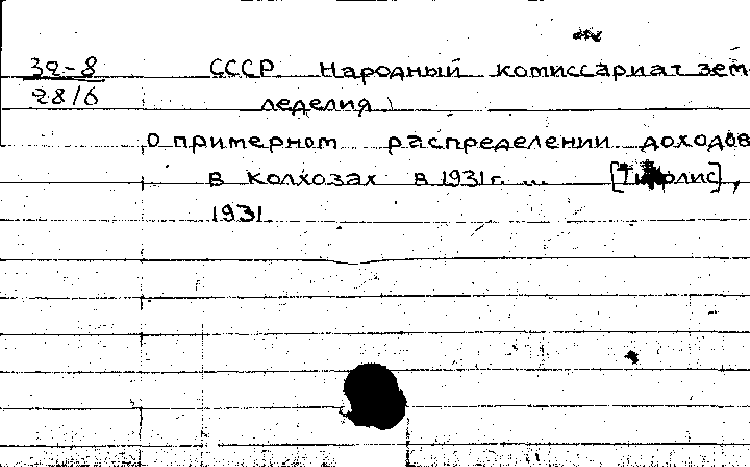 32-8
28/6
СССР. Народный комиссариат зем
леделия
О примерном распределении доходов
в колхозах в 1931 г. ... [Тифлис],
1931.